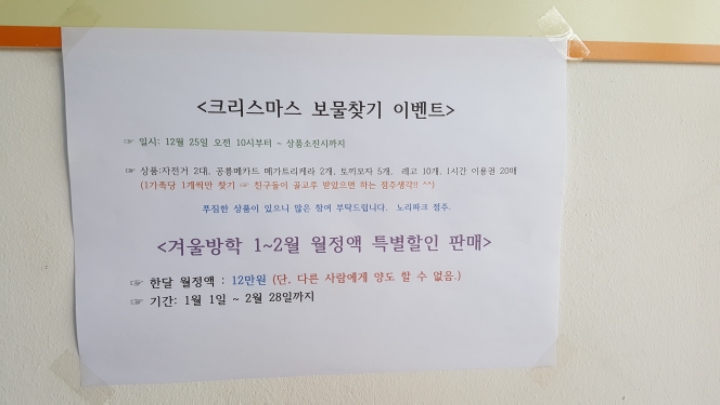 <크리스마스 보물찾기 이벤트>
☞ 일시: 12월 25일 오전 10시부터 ~ 상품소진시까지
☞ 상품:자전거 2대, 공룡메카드 메가트리케라 2개, 토끼모자 5개, 레고 10개, 1시간 이용권 20매
(1가족당 1개씩만 찾기 ☞ 친구들이 골고루 받았으면 하는 점주생각!! ^^)
푸짐한 상품이 있으니 많은 참여 부탁드립니다. 노리파크 점주.
<겨울방학 1~2월 월정액 특별할인 판매>
☞ 한달 월정액 : 12만원 (단, 다른 사람에게 양도 할 수 없음.)
☞ 기간: 1월 1일 ~ 2월 28일까지